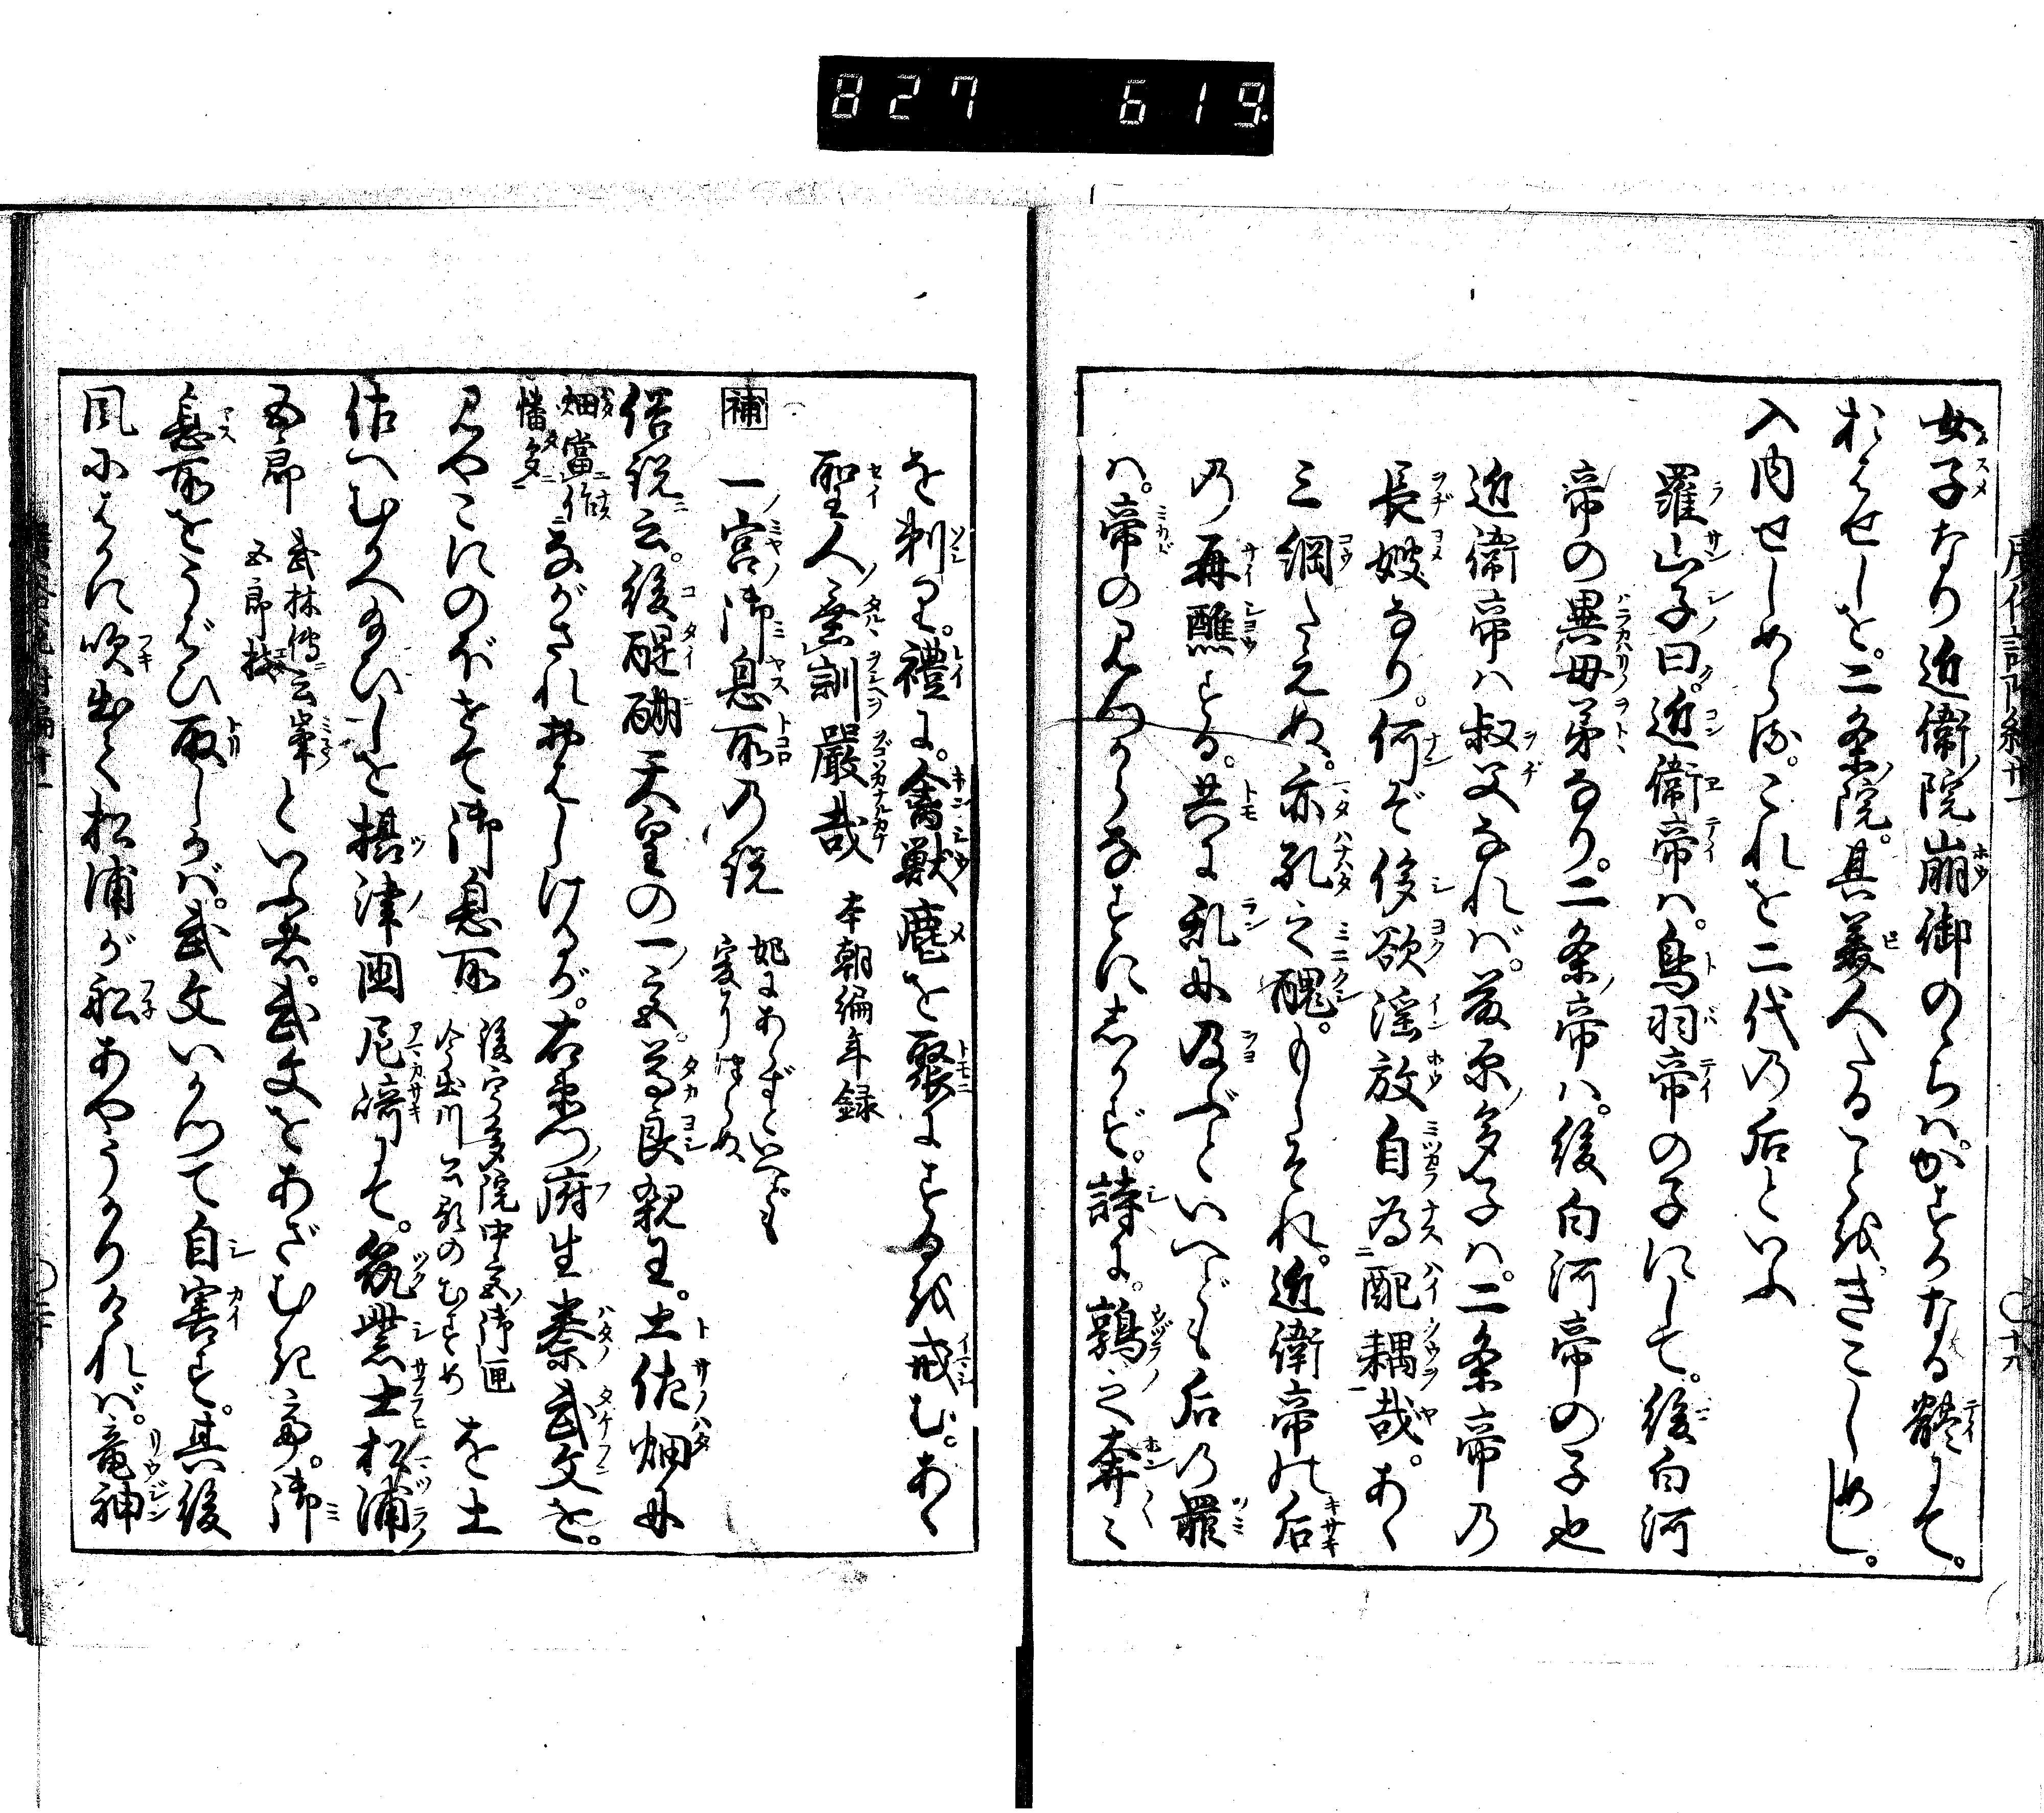 827 619
女子なり近衛院崩御のゝちハ。かすかなる躰にて。
おはせしを。二条院。其美人たることを。きこしめし。
入内せしめらる。これを二代乃后といふ
羅山子曰。近衛帝ハ。鳥羽帝の子にして。後白河
帝の異母弟なり。二条帝ハ。後白河帝の子也
近衛帝ハ叔父なれバ。藤原多子ハ。二条帝乃
長嫂なり。何ぞ侈欲淫放自為配耦哉。あゝ
三綱たえぬ。亦孔之醜。もしそれ。近衛帝の后
乃再醮する。共に乱に及ぶといへども后乃罪
ハ。帝の見つからなすにしかず。詩に。鶉之奔々
を刺り。禮に。禽獣麀を聚にするを戒む。あゝ
聖人ノ垂訓嚴哉 本朝編年録
補 一ノ宮ノ御息所乃説 妃にあらずといへども
爰に
俗説ニ云。後醍醐天皇の一ノ宮。尊良親王。土佐畑に
畑當作幡多
ながされおはしけるが。右衛門ノ府生秦武文を。
見やこにのぼせて御息所 後宮多院中宮ノ御匣
今出川公顕のむすめ を土
佐へむかへ給ひしを摂津国尼崎にて。筑紫士松浦
五郎 武林傳ニ云
五郎 といふ者。武文をあざむき。御
息所をうばひ取しかバ。武文いかつて自害す。其後
風にはかに吹出て松浦が船あやうかりけれバ。竜神